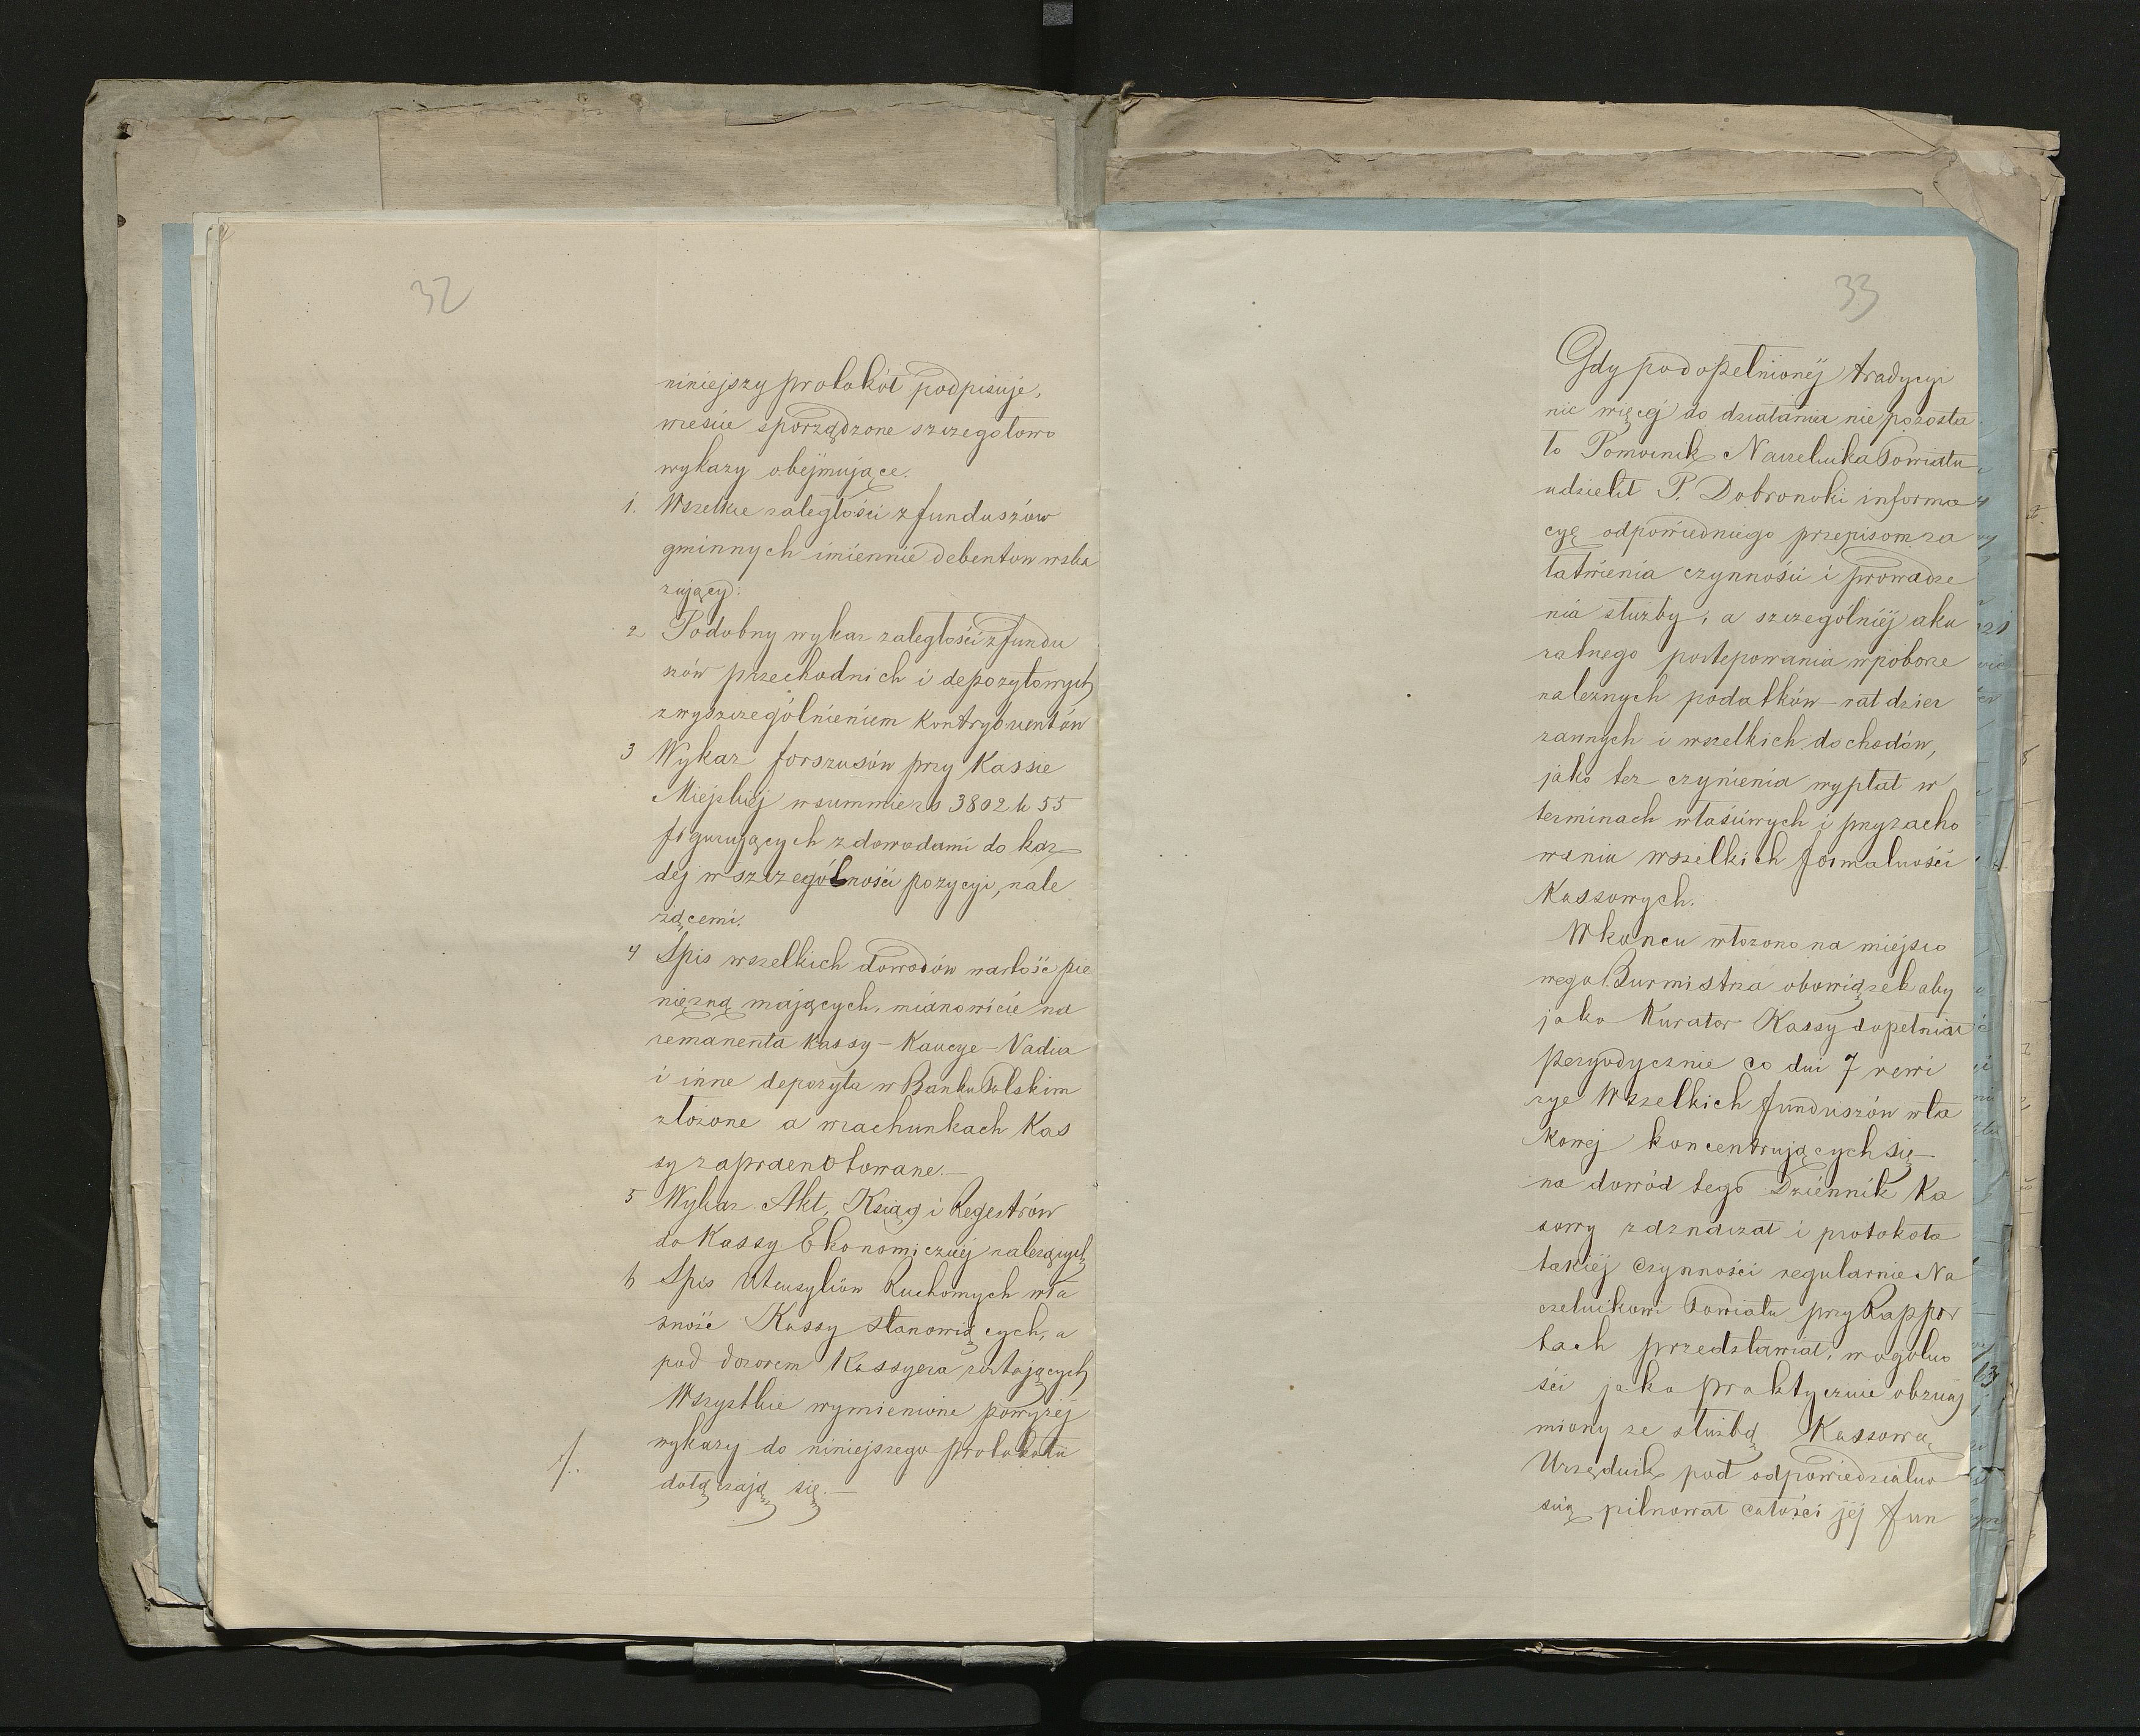 32
niniejszy protokół podpisuje,
wreście sporządzone szczegołowo
wykazy obejmujące.
1. Wszelkie zaległości z funduszów
gminnych imiennie debentów wska
zujący.
2 Podobny wykaz zaległości z fundu
szów przechodnich i depozytowych
z wyszczególnieniem kontrybuentów
3 Wykaz forszusów przy Kassie
Miejskiéj w summie rs 3802 k 55
figurujących z dowodami do każ
dej w szczególności pozycyi, nale
żącemi.
4 Spis wszelkich dowodów wartość pie
niężną mających, mianowicie na
remanenta kassy – Kaucye – Vadia
i inne depozyta w Banku Polskim
złożone a w rachunkach Kas
sy zapraenotowane. –
5 Wykaz Akt, Ksiąg i Regestrów
do Kassy Ekonomicznéj należących
6 Spis Utensyliów Ruchomych wła
sność Kassy stanowiących, a
pod dozorem Kassyera zostających
Wszystkie wymienione powyżéj
wykazy do niniejszego protokołu
dołączają się. –
33
Gdy po dopełnionéj tradycyi
nic więcéj do działania nie pozosta
ło Pomocnik Naczelnika Powiatu
udzielił P. Dobronoki informa
cyę odpowiedniego przepisom za
łatwienia czynności i prowadze
nia służby, a szczególniéj aku
ratnego postepowania w poborze
należnych podatków – rat dzier
żawnych i wszelkich dochodów,
jako też czynienia wypłat w
terminach właściwych i przy zacho
waniu wszelkich formalności
Kassowych.
W końcu włożono na miejsco
wego Burmistrza obowiązek aby
jako Kurator Kassy dopełniał
peryodycznie co dni 7 rewi
zye wszelkich funduszów w ta
kowej koncentrujących się –
na dowód tego Dziennik Ka
sowy zaznaczał i protokoła
takiéj czynności regularnie Na
czelnikowi Powiatu przy Rappor
tach przedstawiał, w ogolno
ści jako praktycznie obznaj
miony ze służbą Kassową
Urzędnik pod odpowiedzialno
ścią pilnował całości jéj fun